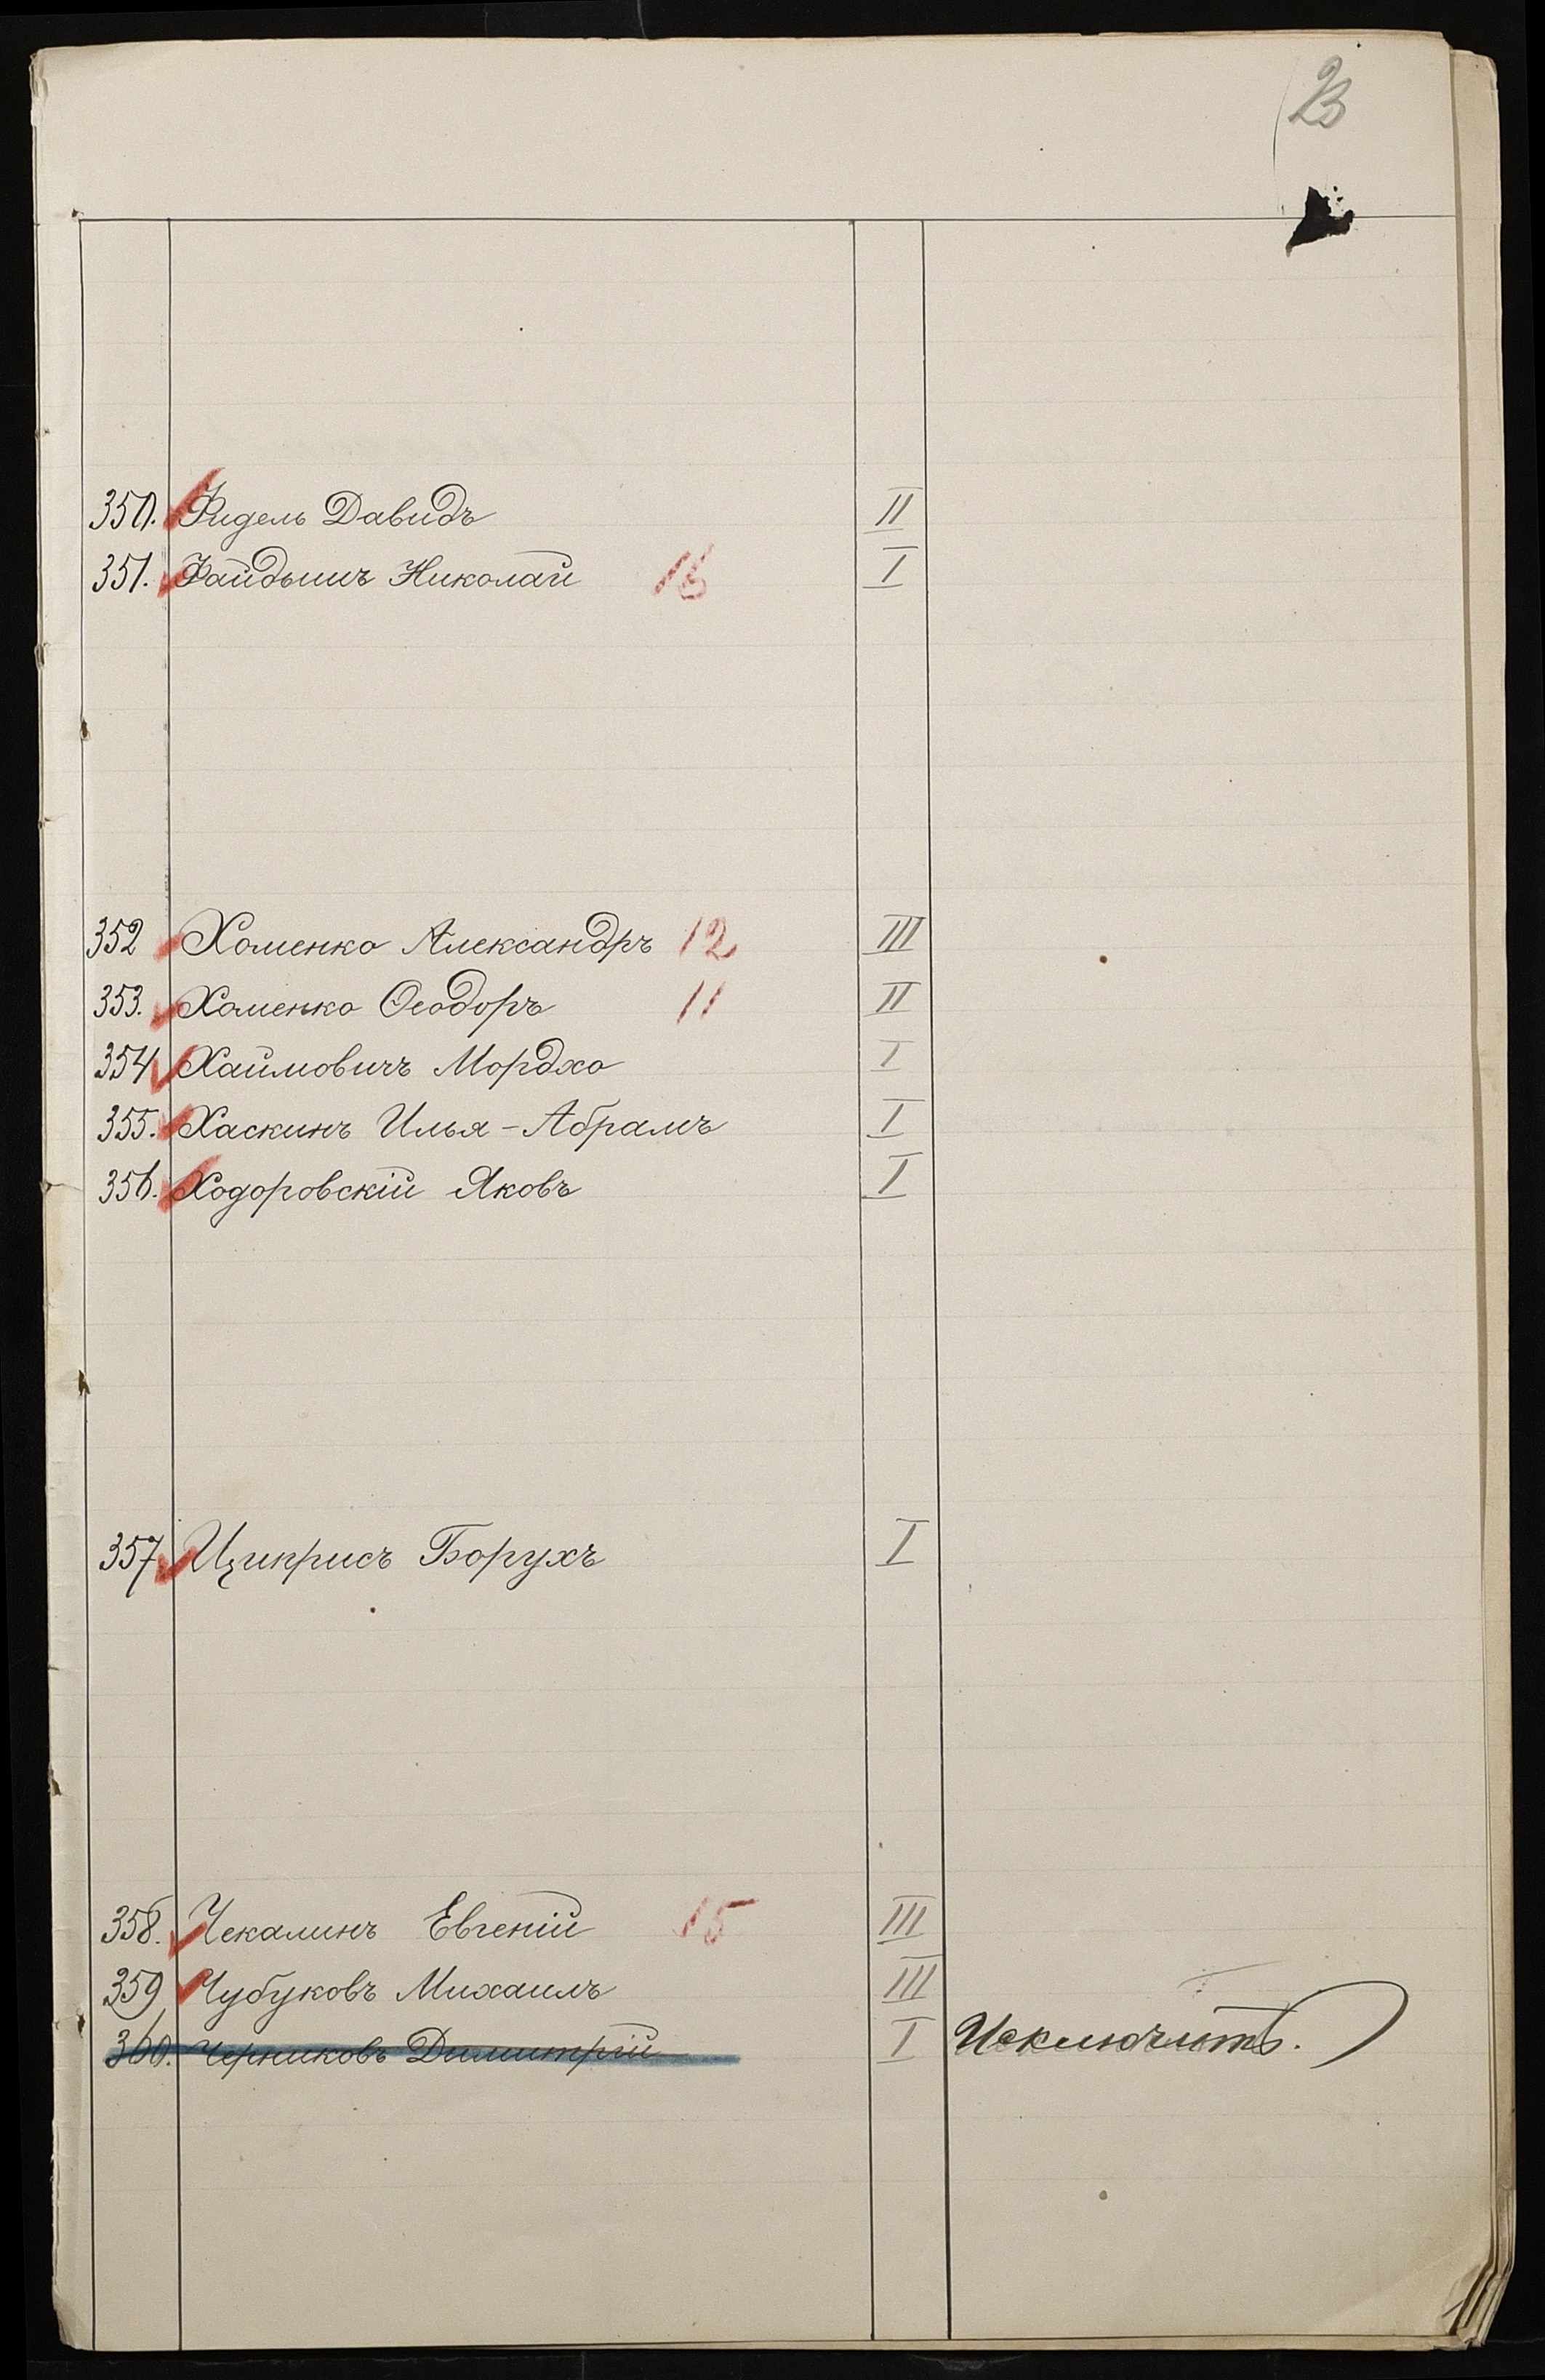 23
350. Фидель Давидъ II
351. Файдышъ Николай 16 I
352 Хоменко Александръ 12 III
353. Хоменко Ѳеодоръ 11 II
354 Хаймовичъ Мордхо I
355. Хаскинъ Илья-Абрамъ I
356. Ходоровскій Яковъ I
357 Циприсъ Борухъ I
358. Чекалинъ Евгеній 15 III
359 Чубуковъ Михаилъ III
360. Черниковъ Димитрій I Исключить.